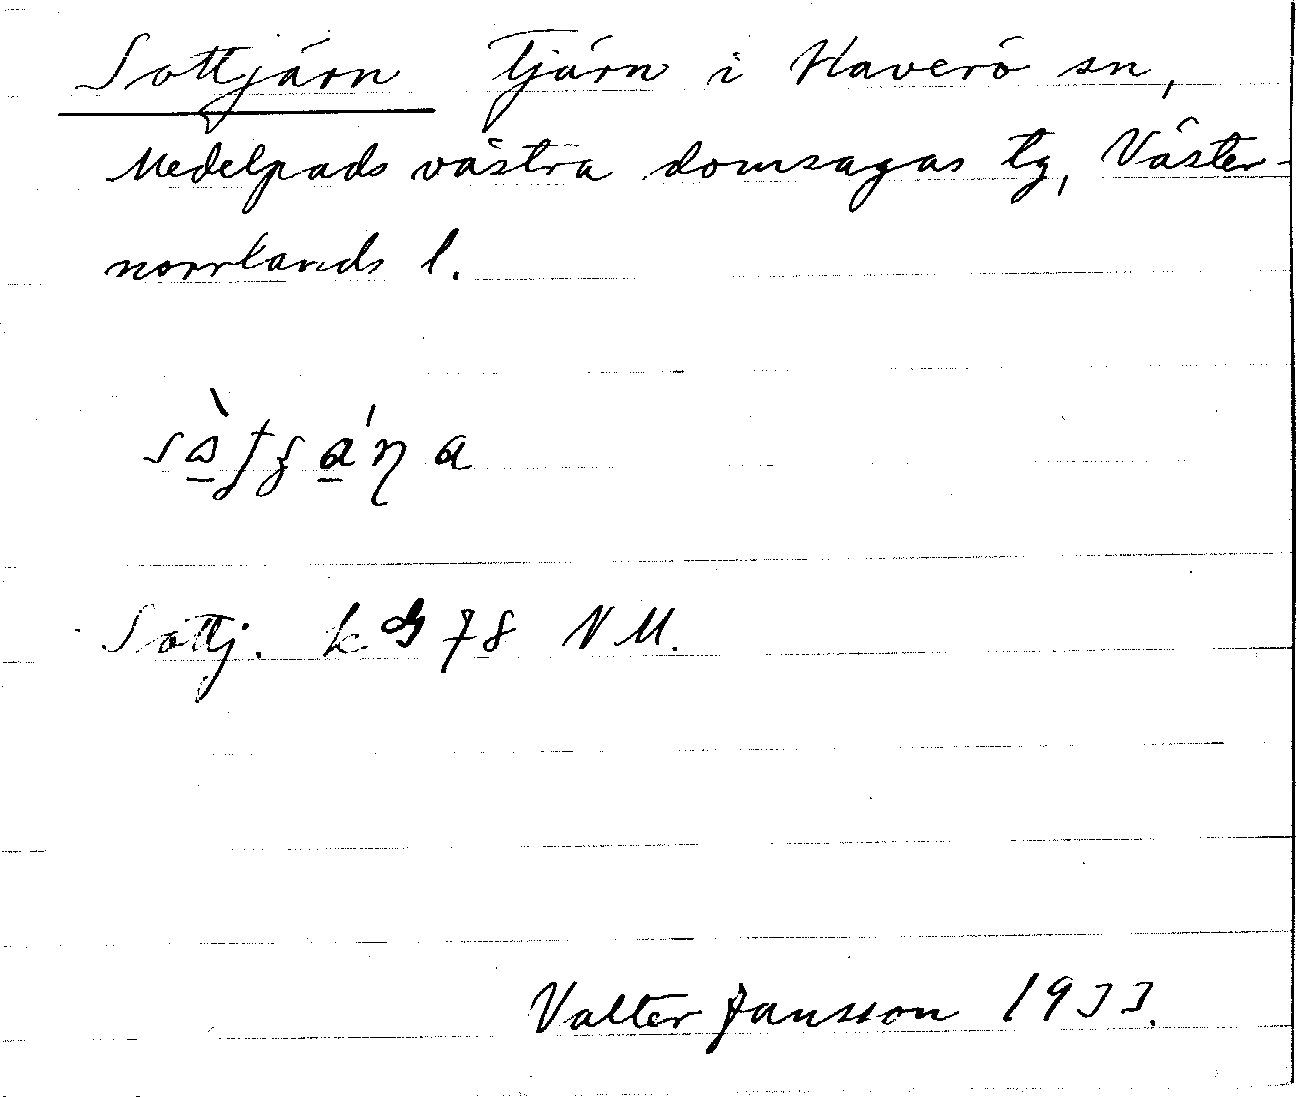 Sottjärn Tjärn i Haverö sn,
Medelpads västra domsagas tg, Väster-
norrlands l.
Sottj. k 78 NM.
Valter Jansson 1933.